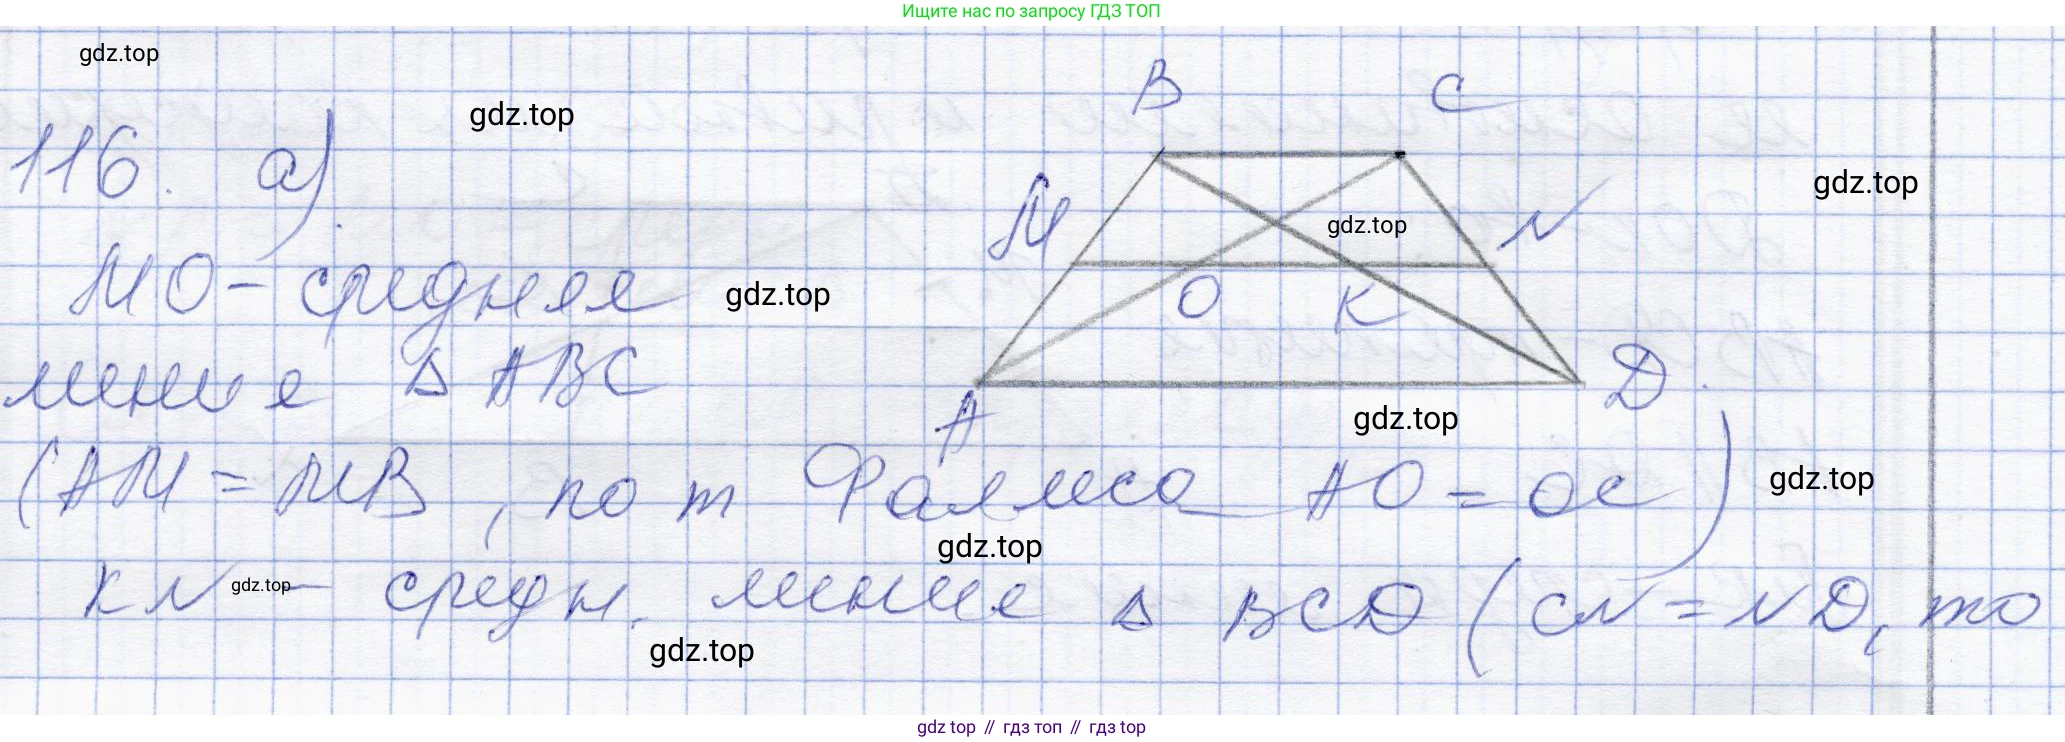 Ищите нас по запросу ГДЗ ТОП
gdz.top
gdz.top
B C
116. а)
gdz.top
M
gdz.top
N
МО - средняя
gdz.top
O K
линия Δ ABC
D
A
gdz.top
(AM = MB, по т Фалеса AO = OC)
gdz.top
gdz.top
KN - средн. линия Δ BCD (CN = ND, то
gdz.top
gdz.top
gdz.top // гдз топ // gdz.top